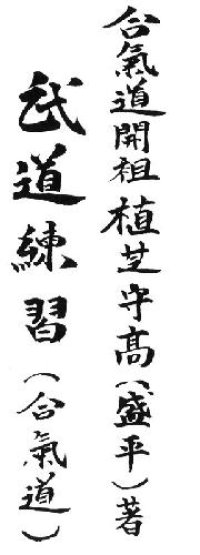 合氣道開祖植芝守高(盛平)著
武道練習(合氣道)